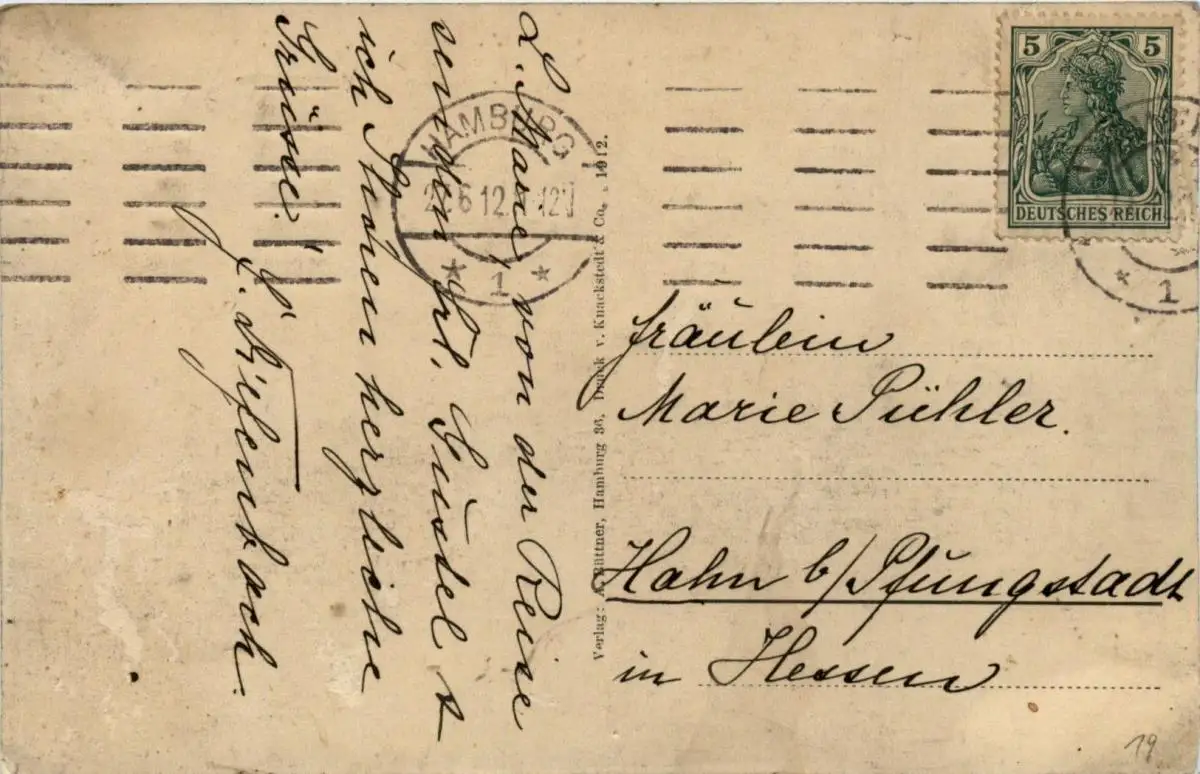 L. Marie, von der Reise
senden Frl. Gustel &
ich Ihnen herzliche
Grüsse.
HAMBURG
6 12.
12
* 1 *
Verlag: A. Büttner, Hamburg 36. Druck v. Knackstedt & Co., 1912.
5 5
DEUTSCHES REICH
* 1
Fräulein
Marie Pühler.
Hahn b/Pfungstadt
in Hessen
19